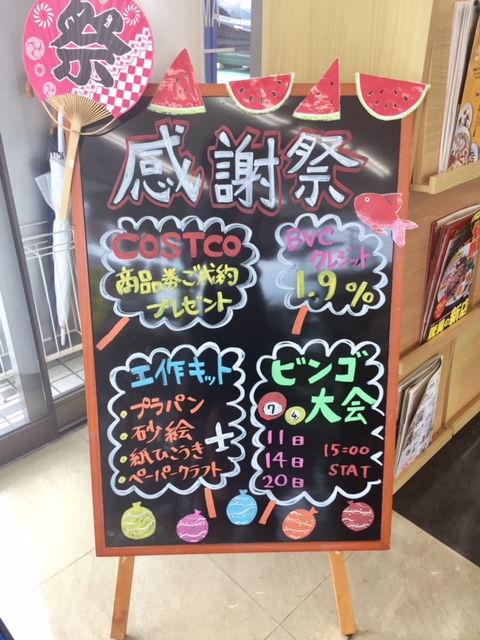 祭
感謝祭
COSTCO
商品券ご成約
プレゼント
BVC
クレジット
1.9%
工作キット
・プラバン
・砂絵
・紙ひこうき
・ペーパークラフト
ビンゴ
7 4 大会
11日
14日
20日
15=00
STAT